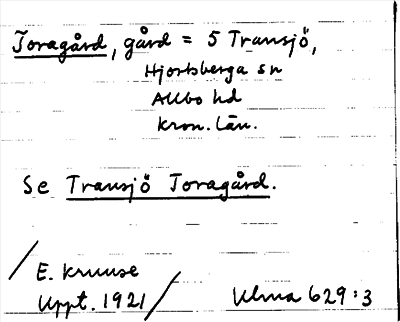 Toragård, gård = 5 Transjö,
Hjortsberga sn
Allbo hd
Kron. län.
Se Transjö Toragård.
/ E. Kruuse
Uppt. 1921 /
Ulma 629:3